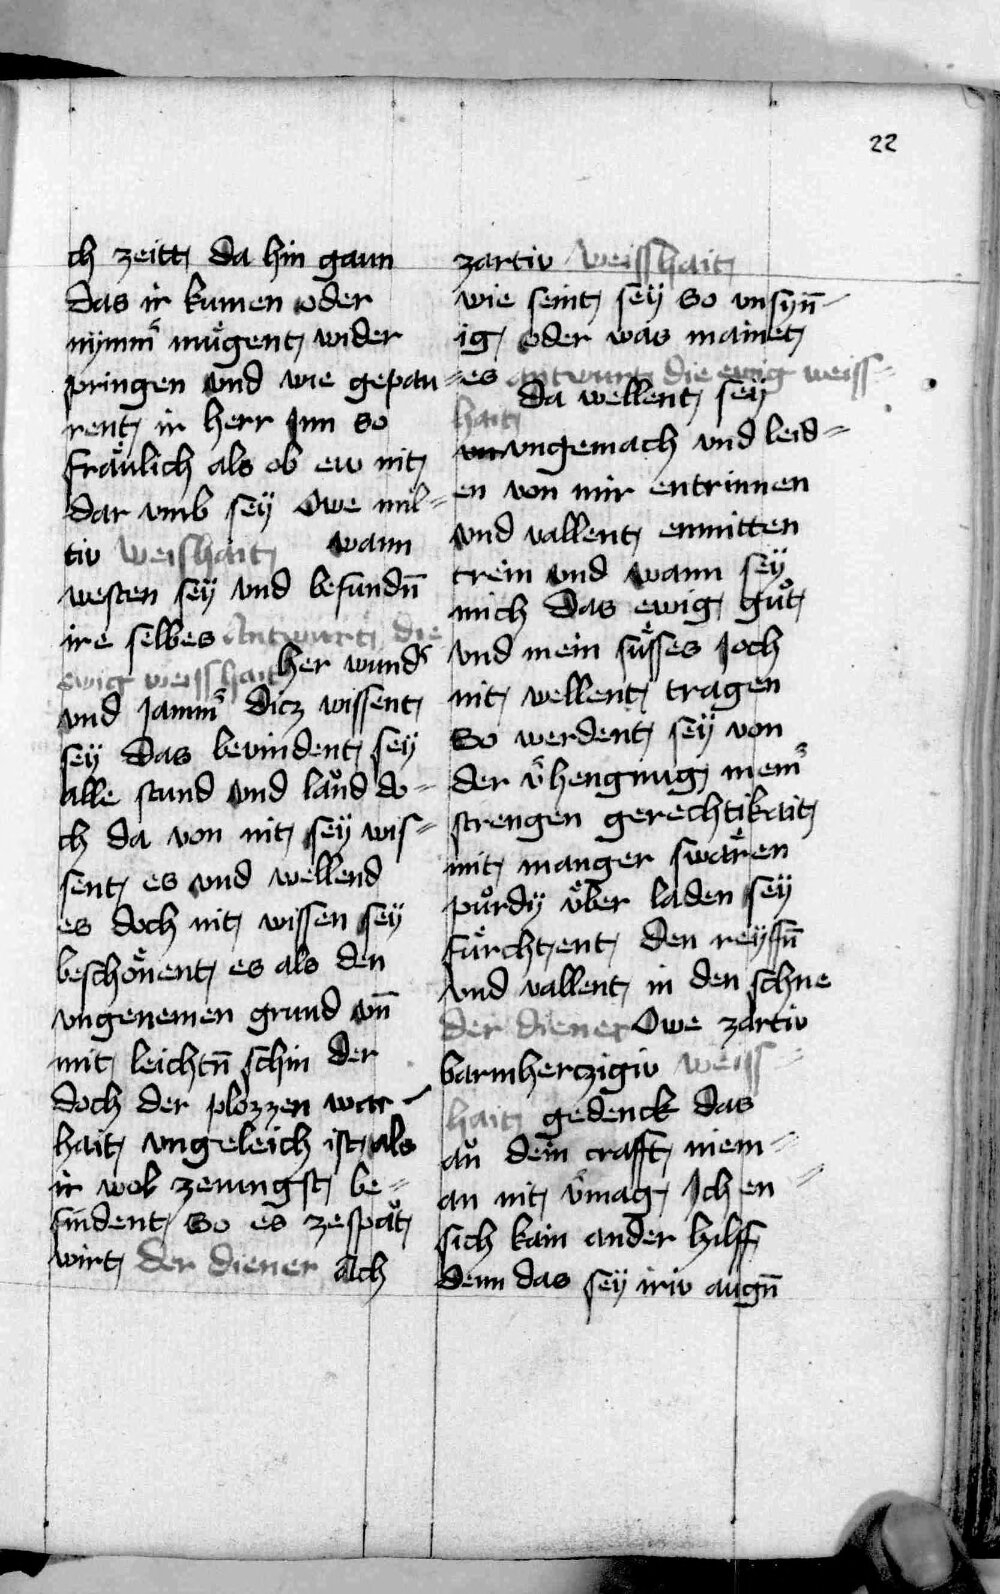 22
ch zeitt da hin gaun
das ir kumen oder
nÿmm̄ mu̍gent wider
pringen vnd wie gepau=
rent ir herr Jnn so
fra̍ulich als ob ew nit
dar vmb seÿ Owe mil=
tiv weishait wann
westen seÿ vnd befundn̄
ire selbes Antwurt die
ewig weisshait her wund᷎
vnd Jamm᷎ dicz wissent
seÿ das bevindent seÿ
alle stund vnd lau̍d do=
ch da von nit seÿ wis=
sent es vnd wellend
es doch nit wissen seÿ
beschö̍nent es als den
vngenemen grund vn̄
mit leichtn̄ schin der
doch der plozzen war
hait vngeleich ist als
ir wol zeiungst be=
findent So es zespa̍t
wirt der diener Ach
zartiv weisshait
wie seint seÿ so vnsÿn̄
ig oder was mainet
es antwurt die ewig weiss=
hait da wellent seÿ
vngemach vnd leid=
en von mir entrinnen
vnd vallent enmitten
trein vnd wann seÿ
mich das ewig gůt
vnd mein su̍sses Joch
nit wellent tragen
So werdent seÿ von
der v᷎hengnug mein᷎
strengen gerechtikait
mit manger swa̍ren
pu̍rdÿ u̍ber laden seÿ
fu̍rchtent den reyffn̄
vnd vallent in den schne
der diener Owe zartiv
barmhercziгiv weiss=
hait gedenck das
aů dein crafft niem=
an nit v᷎mag Jch en=
sich kain ander hilff
denn das seÿ iriv augn̄